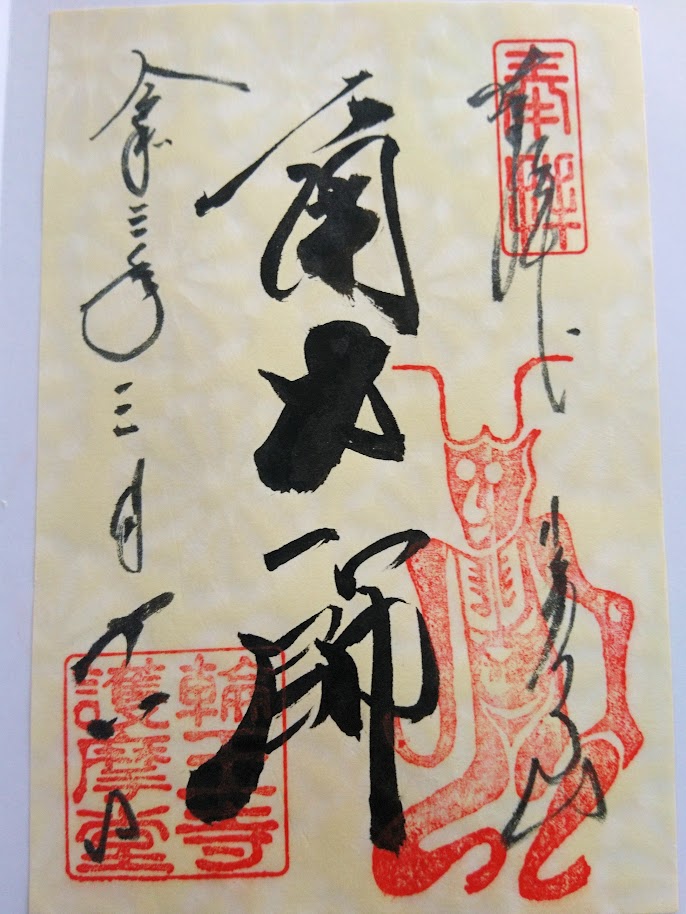 奉拜
日光山
角大師
令和三年三月
輪王寺
護摩堂